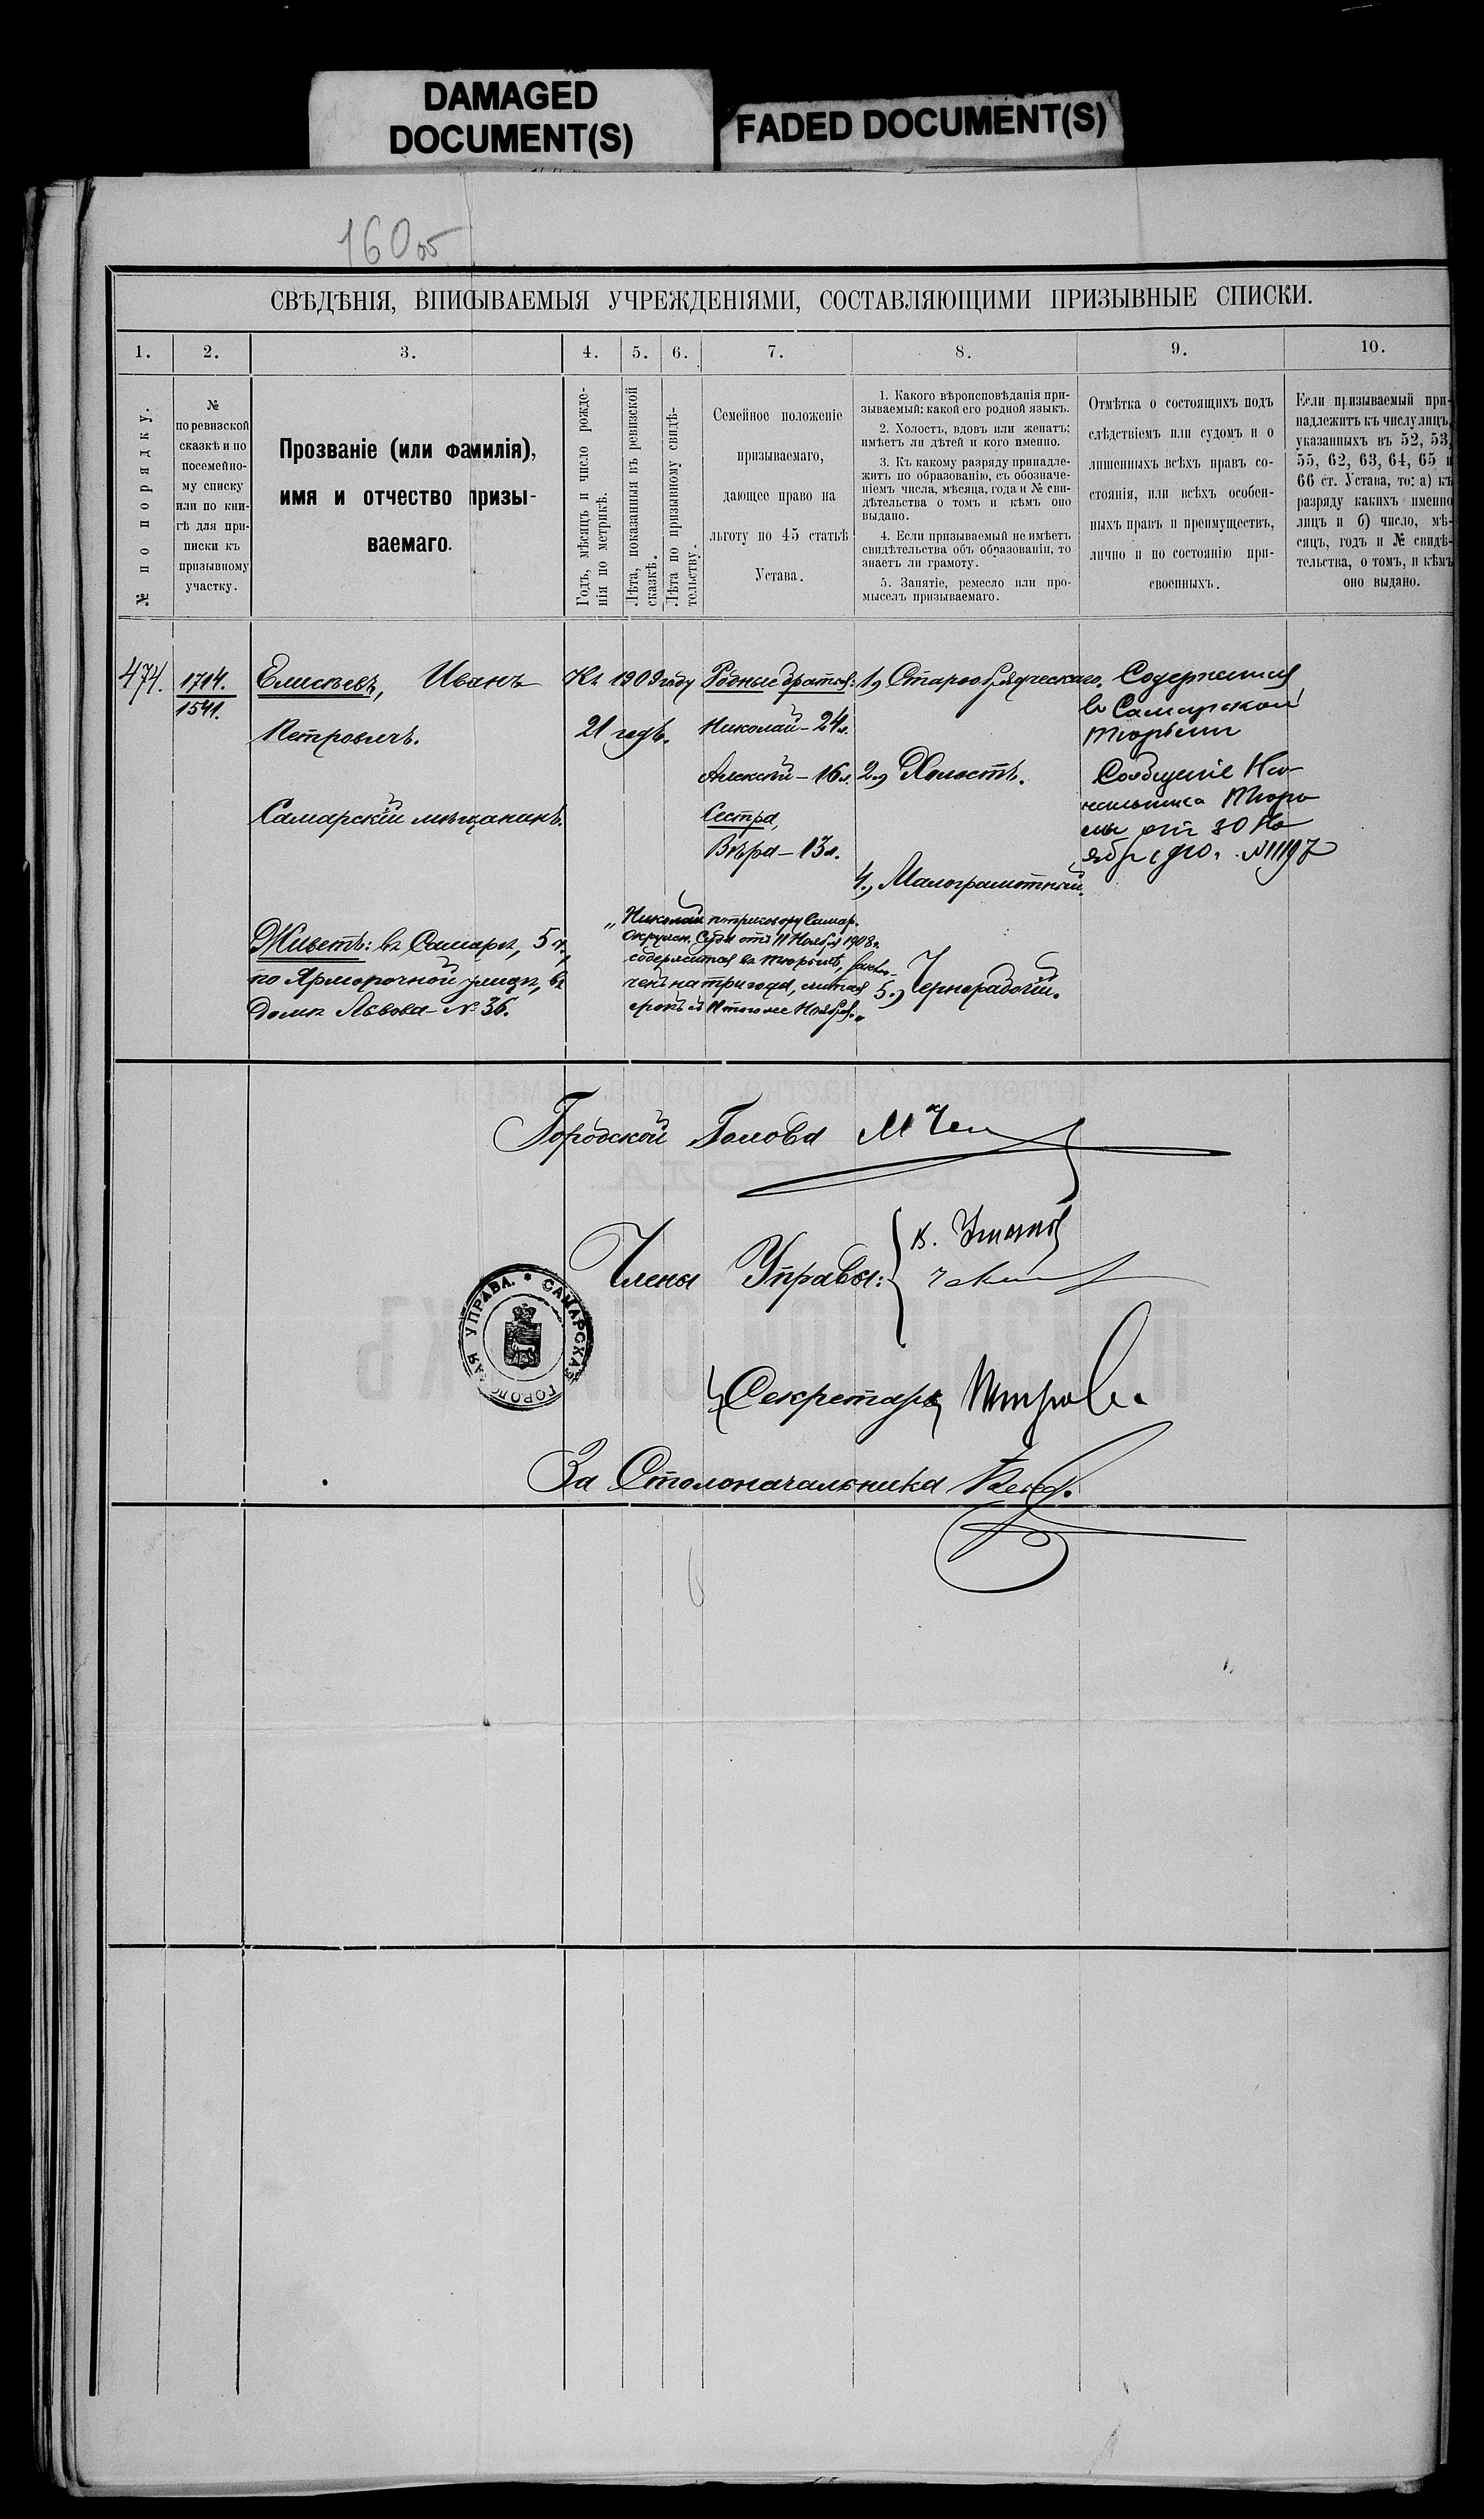 DAMAGED
DOCUMENT(S)
FADED DOCUMENT(S)
160 об
СВѢДѢНІЯ, ВПИСЫВАЕМЫЯ УЧРЕЖДЕНІЯМИ, СОСТАВЛЯЮЩИМИ ПРИЗЫВНЫЕ СПИСКИ.
1.
2.
3.
4.
5.
6.
7.
8.
9.
10.
№ по порядку.
№
по ревизской
сказкѣ и по
посемейно-
му списку
или по кни-
гѣ для при-
писки къ
призывному
участку.
Прозваніе (или фамилія),
имя и отчество призы-
ваемаго.
Годъ, мѣсяцъ и число рожде-
нія по метрикѣ.
Лѣта, показанныя въ ревизской
сказкѣ.
Лѣта по призывному свидѣ-
тельству.
Семейное положеніе
призываемаго,
дающее право на
льготу по 45 статьѣ
Устава.
1. Какого вѣроисповѣданія при-
зываемый: какой его родной языкъ.
2. Холостъ, вдовъ или женатъ;
имѣетъ ли дѣтей и кого именно.
3. Къ какому разряду принадле-
житъ по образованію, съ обозначе-
ніемъ числа, мѣсяца, года и № сви-
дѣтельства о томъ и кѣмъ оно
выдано.
4. Если призываемый не имѣетъ
свидѣтельства объ образованіи, то
знаетъ ли грамоту.
5. Занятіе, ремесло или про-
мыселъ призываемаго.
Отмѣтка о состоящихъ подъ
слѣдствіемъ или судомъ и о
лишенныхъ всѣхъ правъ со-
стоянія, или всѣхъ особен-
ныхъ правъ и преимуществъ,
лично и по состоянію при-
своенныхъ.
Если призываемый при-
надлежитъ къ числу лицъ,
указанныхъ въ 52, 53,
55, 62, 63, 64, 65 и
66 ст. Устава, то: а) къ
разряду какихъ именно
лицъ и б) число, мѣ-
сяцъ, годъ и № свидѣ-
тельства, о томъ, и кѣмъ
оно выдано.
474.
1714.
1541.
Елисѣевъ, Иванъ
Петровичъ.
Самарскій мѣщанинъ.
Живетъ: въ Самарѣ, 5 ч.,
по Ярморочной улицѣ, въ
домѣ Львова № 36.
Къ 1909 году
21 годъ.
Родные братья:
Николай – 24 л.
Алексѣй – 16 л.
Сестра,
Вѣра – 13 л.
„Николай по приговору Самар.
Окружн. Суда отъ 11 Ноября 1908 г.
содержится въ тюрьмѣ, заклю-
ченъ на три года, считая
срокъ съ 11 того же Ноября."
1, Старообрядческаго.
2, Холостъ.
4., Малограмотный.
5., Чернорабочій.
Содержится
въ Самарской
тюрьмѣ
Сообщеніе На-
чальника Тюрь
мы отъ 30 Но
ября с/910. № 11197
Городской Голова
Члены Управы:
Секретарь
За Столоначальника
САМАРСКАЯ ГОРОДСКАЯ УПРАВА.